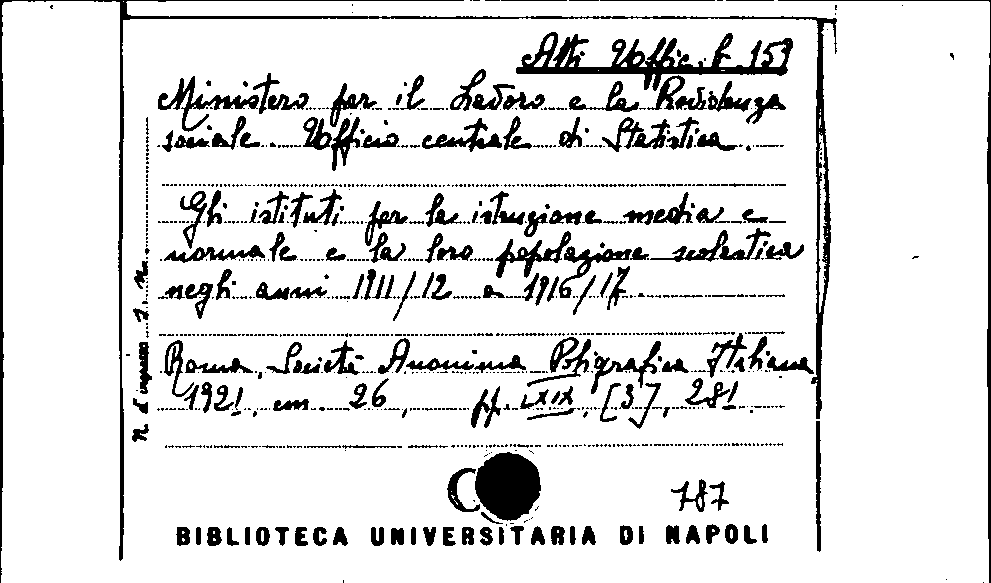 Atti Uffic. b. 159
Ministero per il Lavoro e la Previdenza
sociale. Ufficio centrale di Statistica.
Gli istituti per la istruzione media e
normale e la loro popolazione scolastica
negli anni 1911/12 a 1916/17.
Roma, Società Anonima Poligrafica Italiana,
1921, cm. 26, pp. LXIX, [3], 281.
N. d'ingresso I. N.
787
BIBLIOTECA UNIVERSITARIA DI NAPOLI